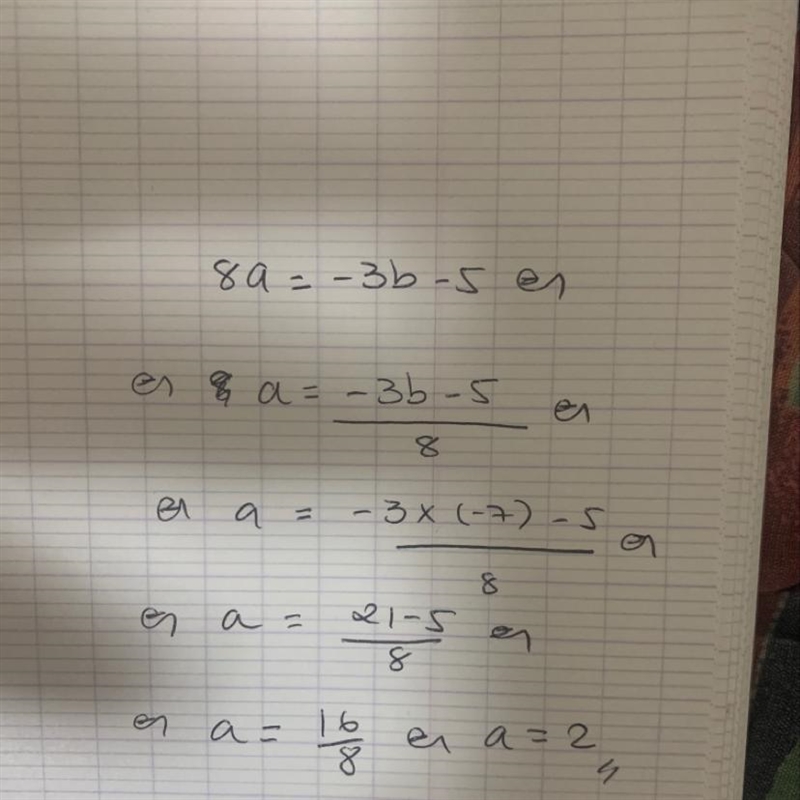 8a = -3b - 5 ⇔
⇔ a = (-3b - 5)/8 ⇔
⇔ a = (-3 × (-7) - 5)/8 ⇔
⇔ a = (21 - 5)/8 ⇔
⇔ a = 16/8 ⇔ a = 2